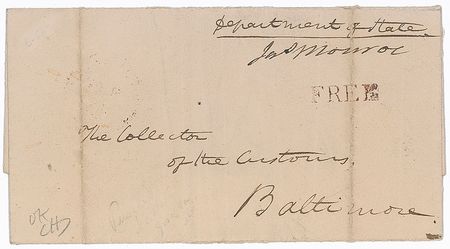 Department of State.
Jas Monroe
FREE
The Collector
of the Customs,
Baltimore.
OK
CHJ